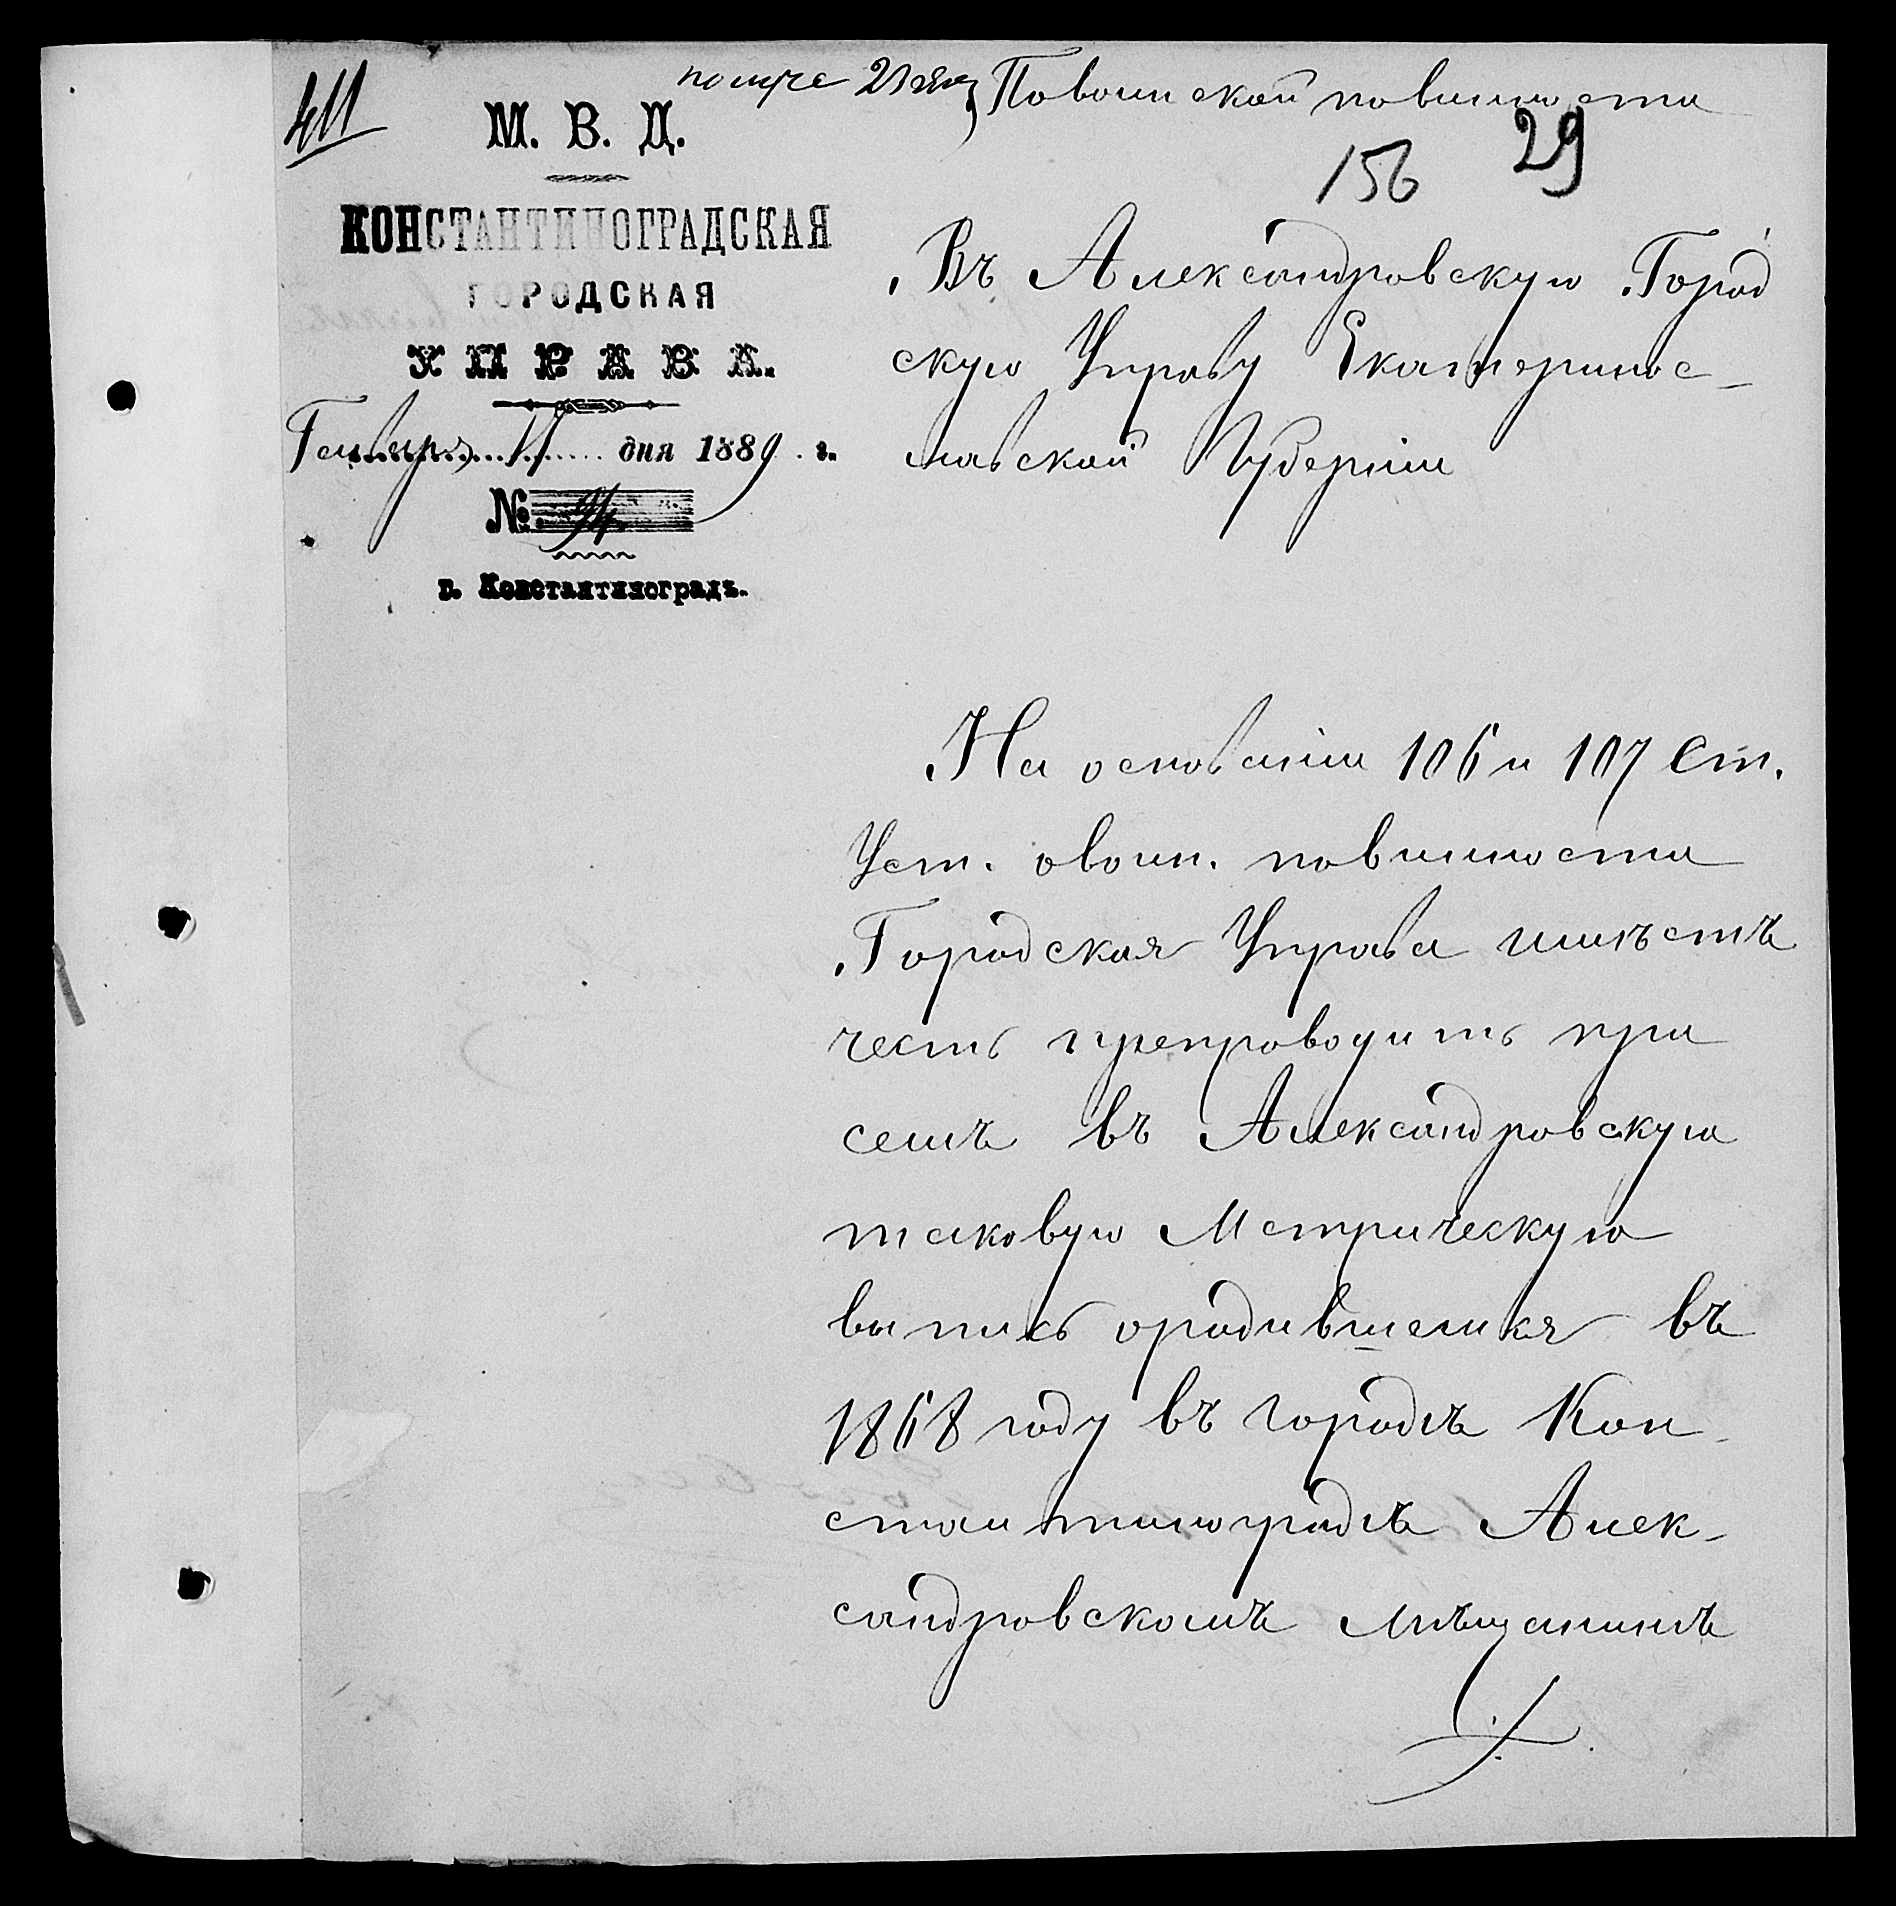 411
По воинской повинности
М. В. Д.
29
156
КОНСТАНТИНОГРАДСКАЯ
ГОРОДСКАЯ
УПРАВА.
Генваря 11 дня 1889 г.
№ 94
г. Константиноградъ.
Въ Александровскую Город
скую Управу Екатеринос-
лавской Губерніи
На основаніи 106 и 107 Ст.
Уст. о воин. повинности
Городская Управа имѣетъ
честь препроводить при
семъ въ Александровскую
таковую Метрическую
выпись о родившемся въ
1868 году въ городѣ Кон-
стантиноградѣ Алек-
сандровскомъ мѣщанинѣ